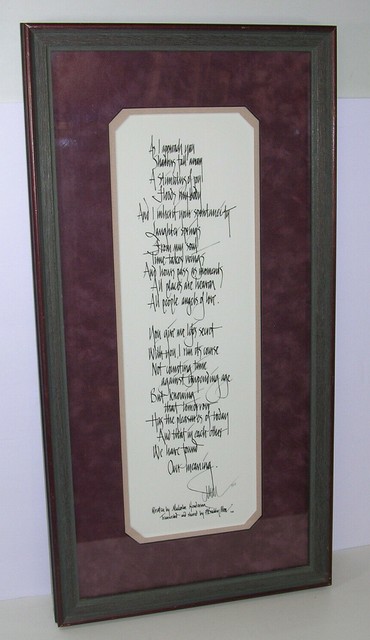 As I approach you
Shadows fall away
A stimulus of you
Floods my body
And I inherit your spontaneity
Laughter springs
From my soul
Time takes wings
And hours pass as moments
All places are heaven
All people angels of love.
You give me life's secret
With you I run its course
Not counting time
against impending age
But knowing
that tomorrow
Has the pleasures of today
And that in each other
We have found
Our meaning.
Written by Malcolm
and by